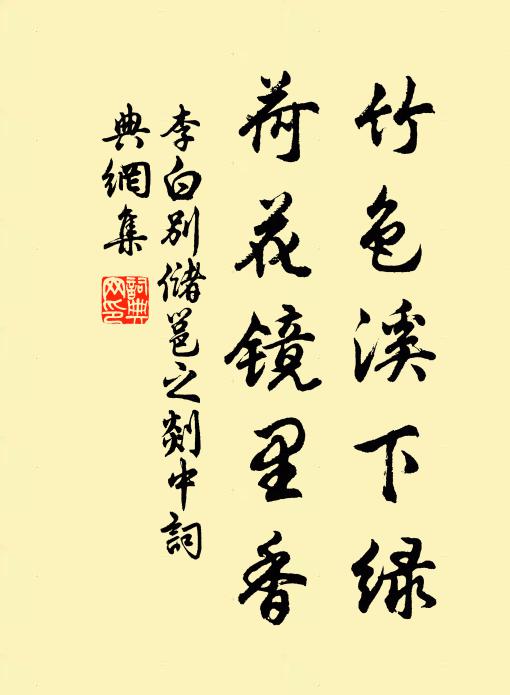 竹色溪下绿
荷花镜里香
李白別儲邕之剡中詞
典網集
詞典网印